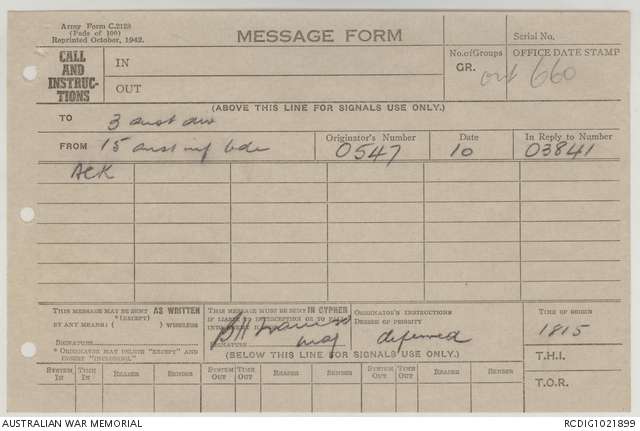 Army Form C.2128
(Pads of 100)
Reprinted October, 1942.
MESSAGE FORM
Serial No.
CALL
AND
INSTRUC-
TIONS
IN
OUT
No. of Groups
GR.
OFFICE DATE STAMP
out 660
(ABOVE THIS LINE FOR SIGNALS USE ONLY.)
TO 3 aust div
FROM 15 aust inf bde
Originator's Number
0547
Date
10
In Reply to Number
03841
ACK
THIS MESSAGE MAY BE SENT AS WRITTEN
(EXCEPT)
BY ANY MEANS ( ) WIRELESS
SIGNATURE
* ORIGINATOR MAY DELETE "EXCEPT" AND
INSERT "INCLUDING."
THIS MESSAGE MUST BE SENT IN CYPHER
IF LIABLE TO INTERCEPTION OR TO FALL
INTO ENEMY HANDS
SIGNATURE
Maj
ORIGINATOR'S INSTRUCTIONS
DEGREE OF PRIORITY
deferred
TIME OF ORIGIN
1815
(BELOW THIS LINE FOR SIGNALS USE ONLY.)
T.H.I.
T.O.R.
SYSTEM IN
TIME IN
READER
SENDER
SYSTEM OUT
TIME OUT
READER
SENDER
SYSTEM OUT
TIME OUT
READER
SENDER
AUSTRALIAN WAR MEMORIAL
RCDIG1021899